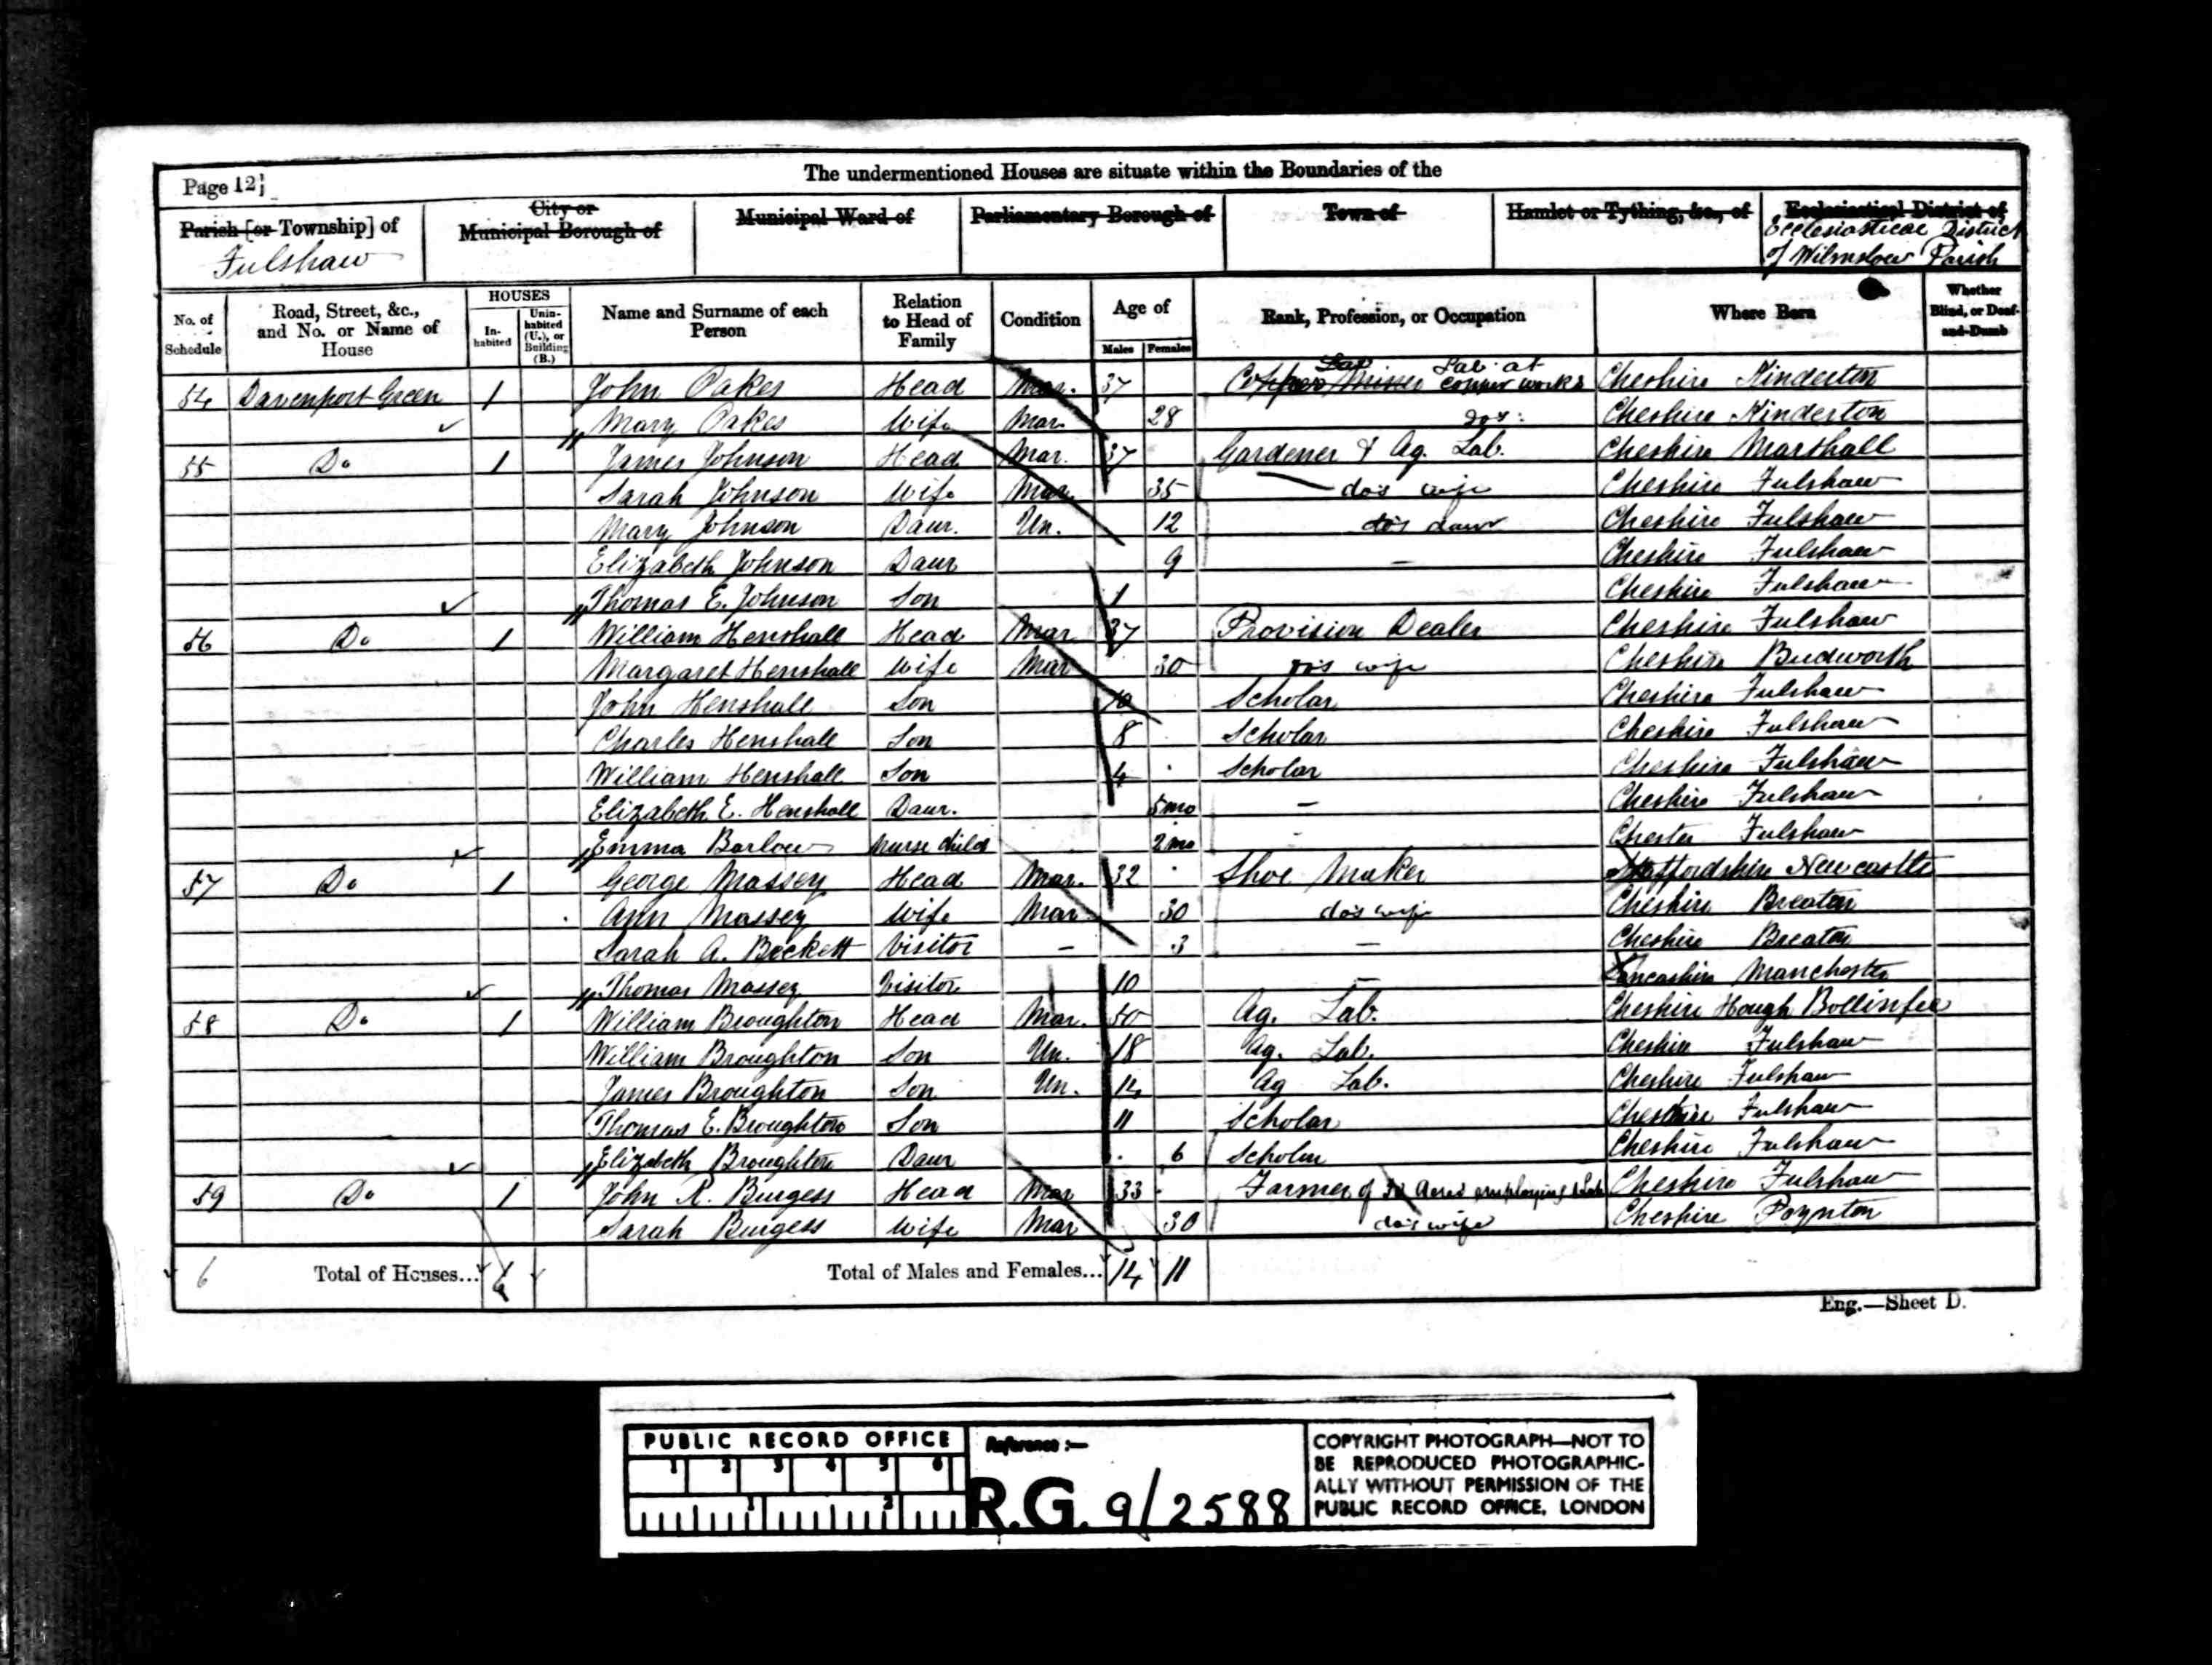 Page 12
The undermentioned Houses are situate within the Boundaries of the
Parish [or Township] of
Fulshaw
City or
Municipal Borough of
Municipal Ward of
Parliamentary Borough of
Town of
Hamlet or Tything, &c., of
Ecclesiastical District of
Ecclesiastical District
of Wilmslow Parish
No. of Schedule
Road, Street, &c., and No. or Name of House
HOUSES
In-habited
Unin-habited (U.), or Building (B.)
Name and Surname of each Person
Relation to Head of Family
Condition
Age of
Males
Females
Rank, Profession, or Occupation
Where Born
Whether Blind, or Deaf-and-Dumb
54 Davenport Green 1 John Oakes Head Mar. 37 Copper Lab Lab at copper works Cheshire Kinderton
Mary Oakes Wife Mar 28 Cheshire Kinderton
55 Do 1 James Johnson Head Mar. 37 Gardener & Ag. Lab. Cheshire Marthall
Sarah Johnson Wife Mar. 35 do's wife Cheshire Fulshaw
Mary Johnson Daur. Un. 12 do's daur Cheshire Fulshaw
Elizabeth Johnson Daur 9 – Cheshire Fulshaw
Thomas E. Johnson Son 1 Cheshire Fulshaw
56 Do 1 William Henshall Head Mar 37 Provision Dealer Cheshire Fulshaw
Margaret Henshall Wife Mar 30 do's wife Cheshire Budworth
John Henshall Son 10 Scholar Cheshire Fulshaw
Charles Henshall Son 8 Scholar Cheshire Fulshaw
William Henshall Son 4 Scholar Cheshire Fulshaw
Elizabeth E. Henshall Daur. 5 mo – Cheshire Fulshaw
Emma Barlow Nurse child 2 mo – Chester Fulshaw
57 Do 1 George Massey Head Mar. 32 Shoe Maker Staffordshire Newcastle
Ann Massey Wife Mar 30 do's wife Cheshire Breaton
Sarah A. Beckett Visitor – 3 – Cheshire Breaton
Thomas Massey Visitor 10 – Lancashire Manchester
58 Do 1 William Broughton Head Mar. 50 Ag. Lab. Cheshire Hough Bollinfee
William Broughton Son Un. 18 Ag. Lab. Cheshire Fulshaw
James Broughton Son Un. 14 Ag Lab. Cheshire Fulshaw
Thomas E. Broughton Son 11 Scholar Cheshire Fulshaw
Elizabeth Broughton Daur 6 Scholar Cheshire Fulshaw
59 Do 1 John R. Burgess Head Mar 33 Farmer of Acres employing 1 Lab Cheshire Fulshaw
Sarah Burgess Wife Mar 30 do's wife Cheshire Poynton
6 Total of Houses... 6 Total of Males and Females... 14 11
Eng.—Sheet D.
PUBLIC RECORD OFFICE
1 2 3 4 5 6
1 2
Reference :—
R.G. 9/2588
COPYRIGHT PHOTOGRAPH—NOT TO
BE REPRODUCED PHOTOGRAPHIC-
ALLY WITHOUT PERMISSION OF THE
PUBLIC RECORD OFFICE, LONDON